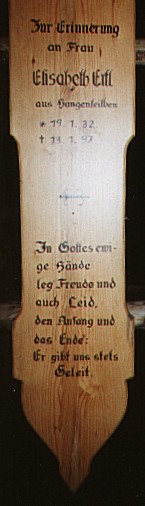 Zur Erinnerung
an Frau
Elisabeth Ertl
aus Hangenleithen
* 19. 1. 32
† 13. 1. 97
In Gottes ewi-
ge Hände
leg Freude und
auch Leid,
den Anfang und
das Ende:
Er gibt uns stets
Geleit.